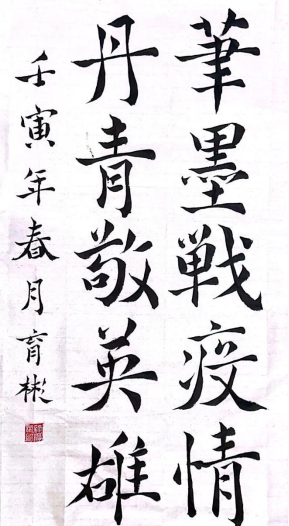 筆墨戦疫情
丹青敬英雄
壬寅年春月育彬